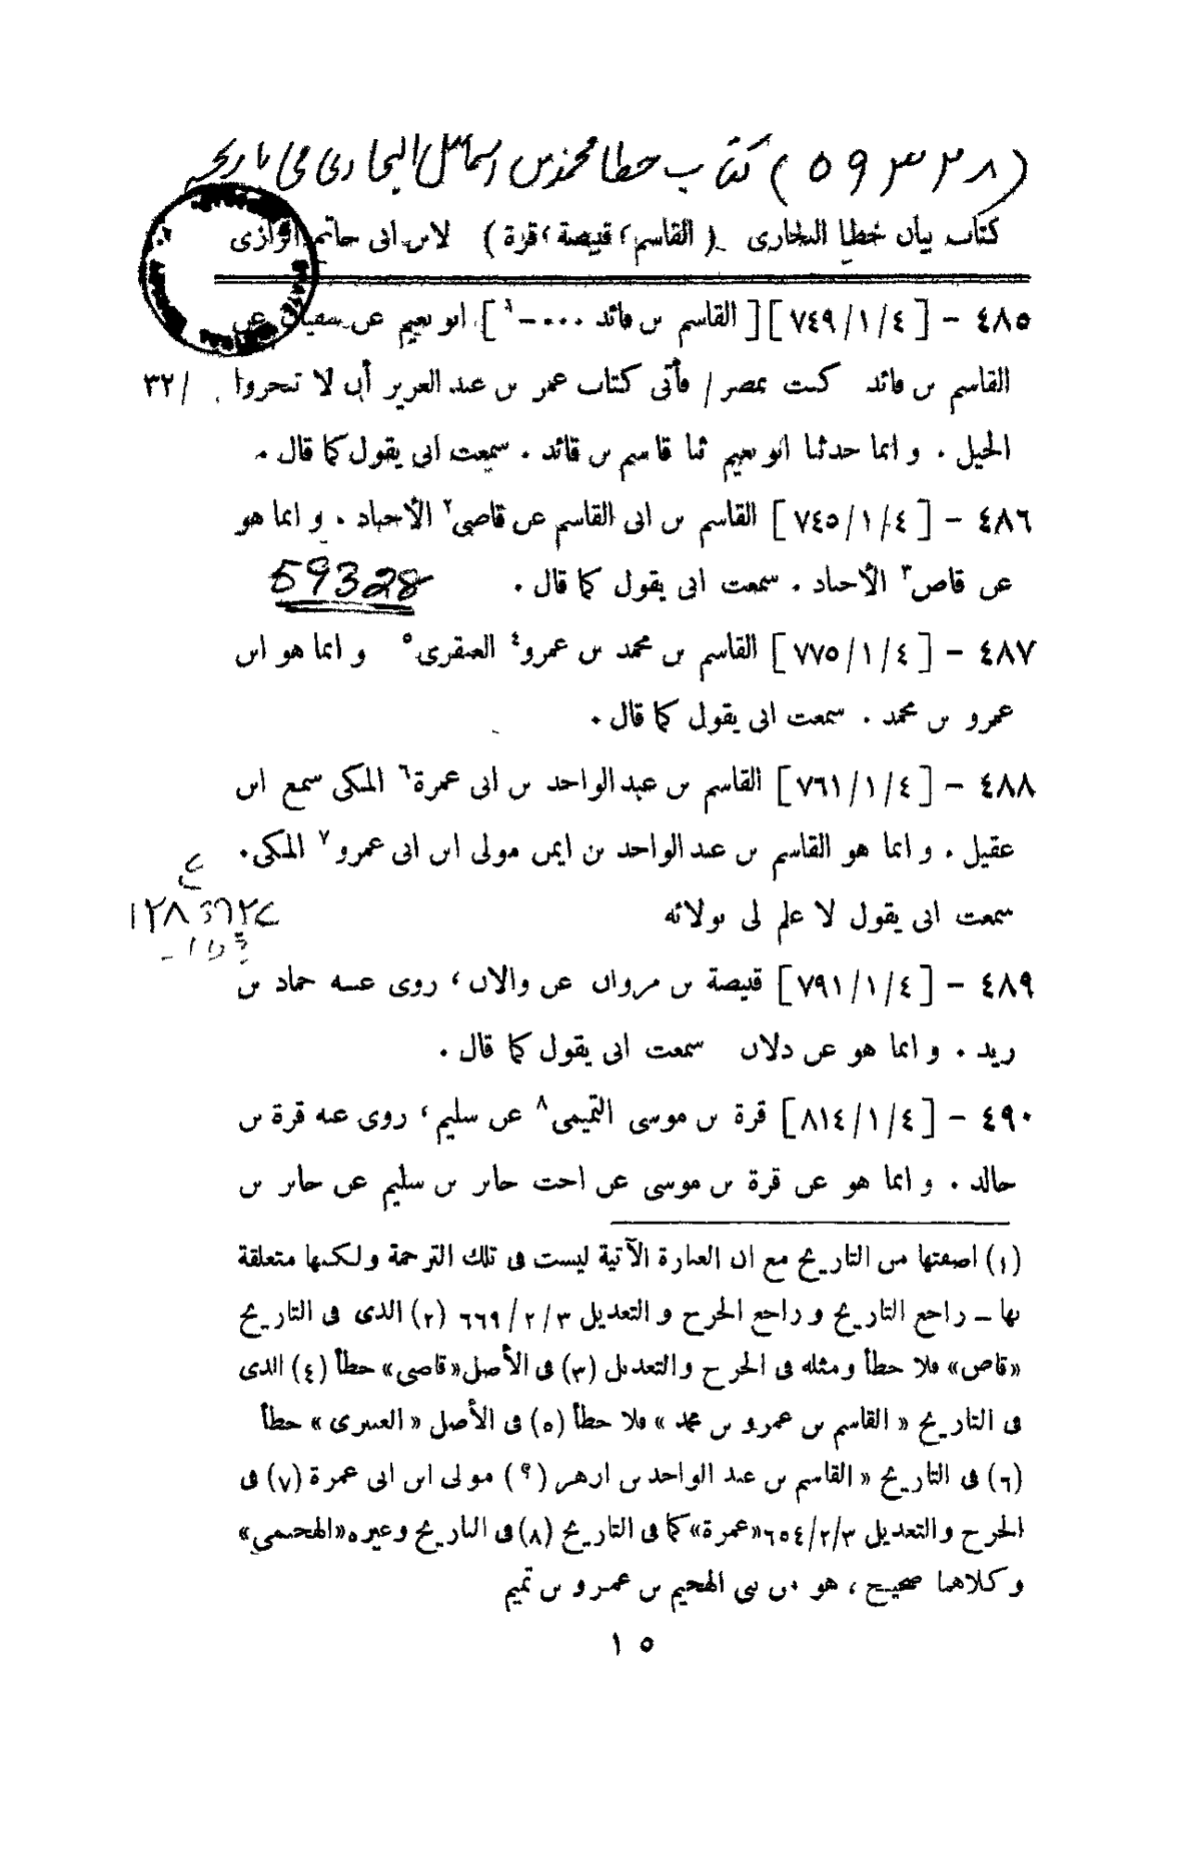 (٥٩٣٢٨) كتاب خطا محمد بن اسماعيل البخارى فى تاريخه
كتاب بيان خطإ البخارى (القاسم، قبيصة، قرة) لابن ابى حاتم الرازى
٤٨٥ - [٧٤٩/١/٤][القاسم بن فائد ...-١] ابو نعيم عن سفيان عن
القاسم بن فائد كنت بمصر / فأتى كتاب عمر بن عبد العزيز أن لا تنحروا /٣٢
الخيل . و انما حدثنا ابو نعيم ثنا قاسم بن قائد . سمعت ابى يقول كما قال .
٤٨٦ - [٧٤٥/١/٤] القاسم بن ابى القاسم عن قاضى٢ الأجناد . و انما هو
عن قاص٣ الأجناد . سمعت ابى يقول كما قال . 59328
٤٨٧ - [٧٧٥/١/٤] القاسم بن محمد بن عمرو٤ العبقرى٥ و انما هو ابن
عمرو بن محمد . سمعت ابى يقول كما قال .
٤٨٨ - [٧٦١/١/٤] القاسم بن عبد الواحد بن ابى عمرة٦ المكى سمع ابن
عقيل . و انما هو القاسم بن عبد الواحد بن ايمن مولى ابن ابى عمرو٧ المكى .
سمعت ابى يقول لا علم لى بولائه
٤٨٩ - [٧٩١/١/٤] قبيصة بن مروان عن والان، روى عنه حماد بن
زيد . و انما هو عن دلان سمعت ابى يقول كما قال .
٤٩٠ - [٨١٤/١/٤] قرة بن موسى التميمى٨ عن سليم، روى عنه قرة بن
خالد . و انما هو عن قرة بن موسى عن اخت جابر بن سليم عن جابر بن
(١) اضفتها من التاريخ مع ان العبارة الآتية ليست فى تلك الترجمة ولكنها متعلقة
بها ـ راجع التاريخ و راجع الجرح و التعديل ٦٦٩/٢/٣ (٢) الذى فى التاريخ
«قاص» فلا خطأ ومثله فى الجرح والتعديل (٣) فى الأصل «قاضى» خطأ (٤) الذى
فى التاريخ « القاسم بن عمرو بن محمد » فلا خطأ (٥) فى الأصل « العبرى » خطأ
(٦) فى التاريخ « القاسم بن عبد الواحد بن ازهر (؟) مولى ابن ابى عمرة (٧) فى
الجرح والتعديل ٦٥٤/٢/٣ «عمرة» كما فى التاريخ (٨) فى التاريخ وغيره «الهجيمى»
وكلاهما صحيح، هو من بنى الهجيم بن عمرو بن تميم
١٥